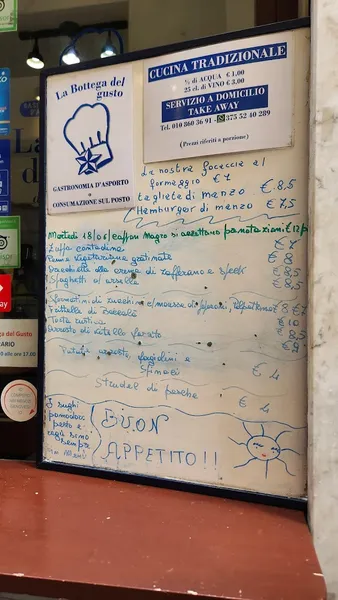 La Bottega del
gusto
GASTRONOMIA D'ASPORTO
CONSUMAZIONE SUL POSTO
CUCINA TRADIZIONALE
½ di ACQUA € 1.00
25 cl. di VINO € 3.00
SERVIZIO A DOMICILIO
TAKE AWAY
Tel. 010 860 36 91 - 375 52 40 289
(Prezzi riferiti a porzione)
La nostra focaccia al
formaggio € 7
tagliete di manzo € 8,5
Hamburger di manzo € 7,5
Martedì 18/06 cappon Magro si accettano prenotazioni € 12 p
Zuppa contadina € 7
Penne vegetariane gratinate € 8
alla crema di zafferano e speck € 8,5
Spaghetti € 8,5
di zucchine e mousse di 8 € 7
Frittelle di Baccalà € 10
Torta rustica € 8,5
Arrosto di vitello farcito
Patate arrosto, fagiolini e
spinaci € 4
Strudel di pesche € 4
I sughi
pomodoro
pesto e
ragù sono
sempre
BUON
APPETITO!!